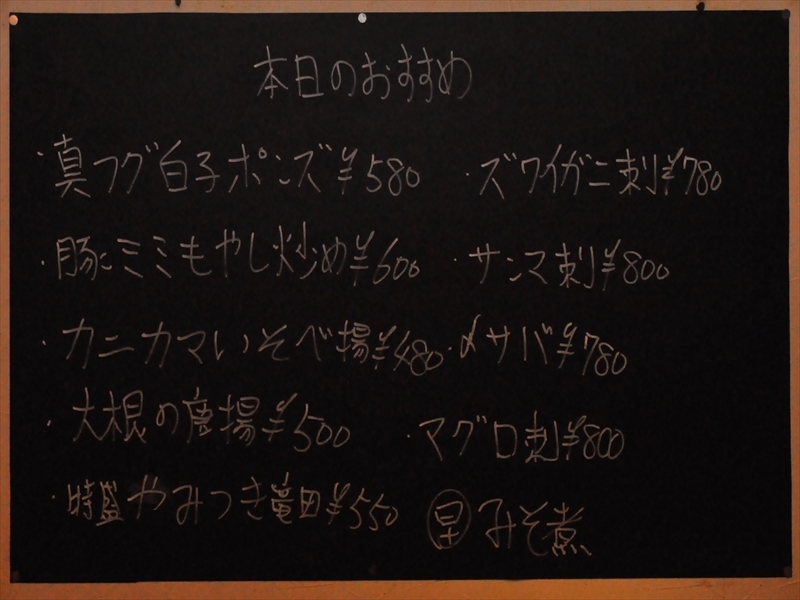 本日のおすすめ
・真フグ白子ポンズ¥580
・豚ミミもやし炒め¥600
・カニカマいそべ揚¥480
・大根の唐揚¥500
・特盛やみつき竜田¥550
・ズワイガニ刺¥780
・サンマ刺¥800
・〆サバ¥780
・マグロ刺¥800
みそ煮